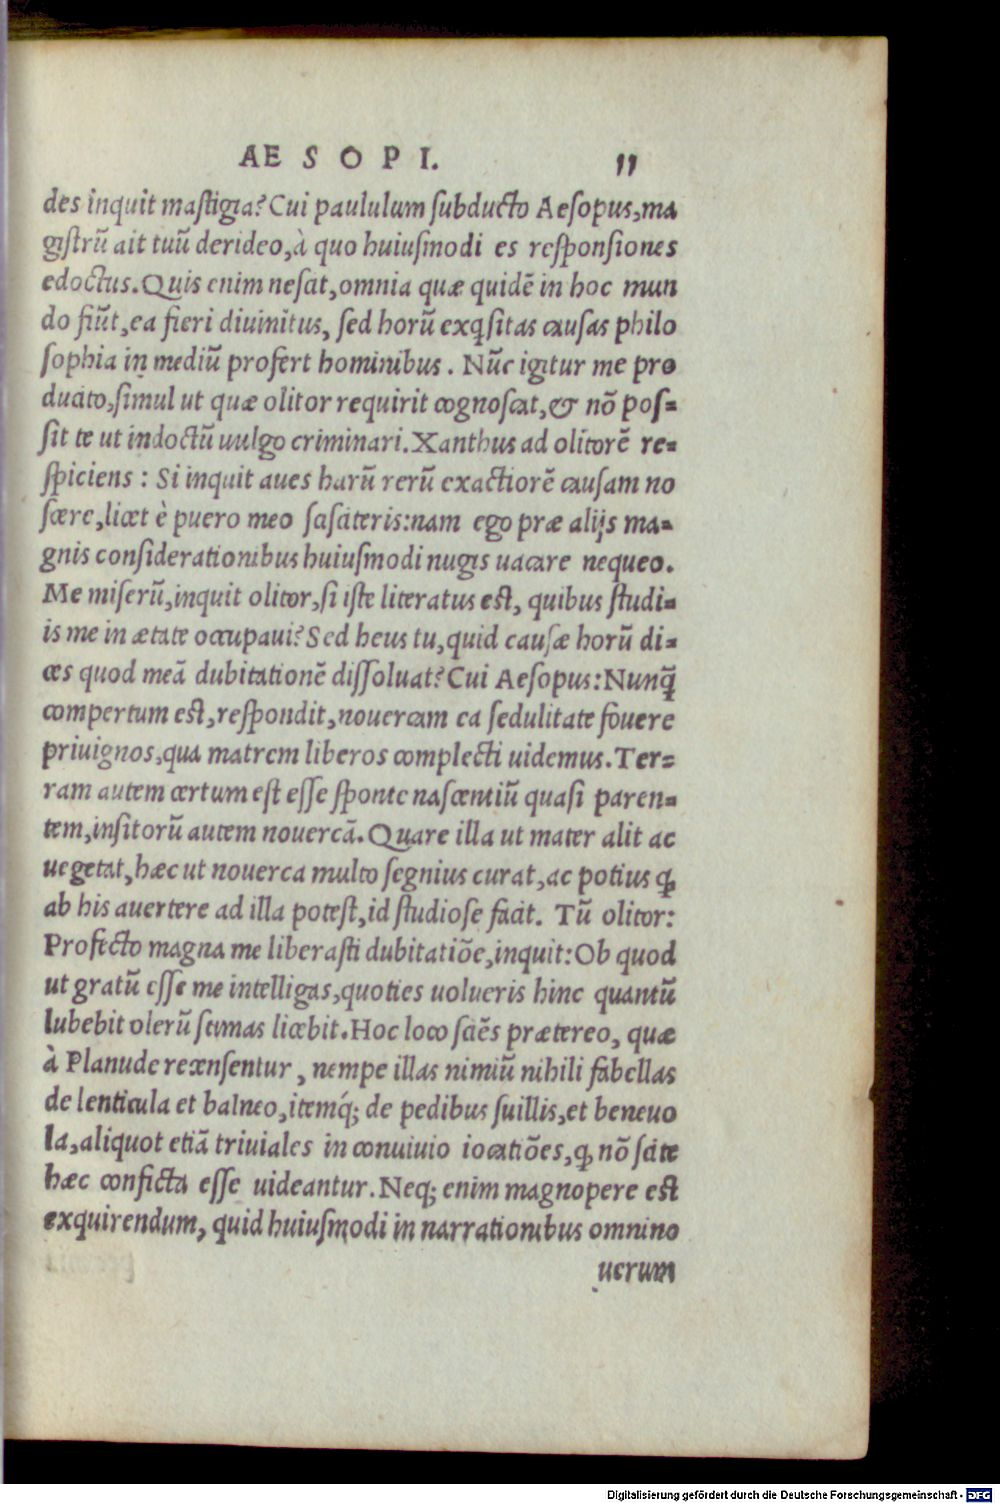 AESOPI. 11
des inquit mastigia? Cui paululum subducto Aesopus, ma
gistrũ ait tuũ derideo, à quo huiusmodi es responsiones
edoctus. Quis enim nescit, omnia quæ quidẽ in hoc mun
do fiũt, ea fieri diuinitus, sed horũ exq̃sitas causas philo
sophia in mediũ profert hominibus. Nũc igitur me pro
ducito, simul ut quæ olitor requirit cognoscat, & nõ pos=
sit te ut indoctũ uulgo criminari. Xanthus ad olitorẽ re=
spiciens: Si inquit aues harũ rerũ exactiorẽ causam no
scere, licet è puero meo sciscteris: nam ego præ alijs ma=
gnis considerationibus huiusmodi nugis uacare nequeo.
Me miserũ, inquit olitor, si iste literatus est, quibus studi=
is me in ætate occupaui? Sed heus tu, quid causæ horũ di=
ces quod meã dubitationẽ dissoluat? Cui Aesopus: Nunq̃
compertum est, respondit, nouercam ea sedulitate fouere
priuignos, qua matrem liberos complecti uidemus. Ter=
ram autem certum est esse sponte nascentiũ quasi paren=
tem, insitorũ autem nouercã. Quare illa ut mater alit ac
uegetat, hæc ut nouerca multo segnius curat, ac potius ꝙ
ab his auertere ad illa potest, id studiose facit. Tũ olitor:
Profecto magna me liberasti dubitatiõe, inquit: Ob quod
ut gratũ esse me intelligas, quoties uolueris hinc quantũ
lubebit olerũ sumas licebit. Hoc loco sciẽs prætereo, quæ
à Planude recensentur, nempe illas nimiũ nihili fabellas
de lenticula et balneo, itemq́; de pedibus suillis, et beneuo
la, aliquot etiã triuiales in conuiuio iocatiões, ꝙ nõ scite
hæc conficta esse uideantur. Neq; enim magnopere est
exquirendum, quid huiusmodi in narrationibus omnino
uerum
Digitalisierung gefördert durch die Deutsche Forschungsgemeinschaft - DFG